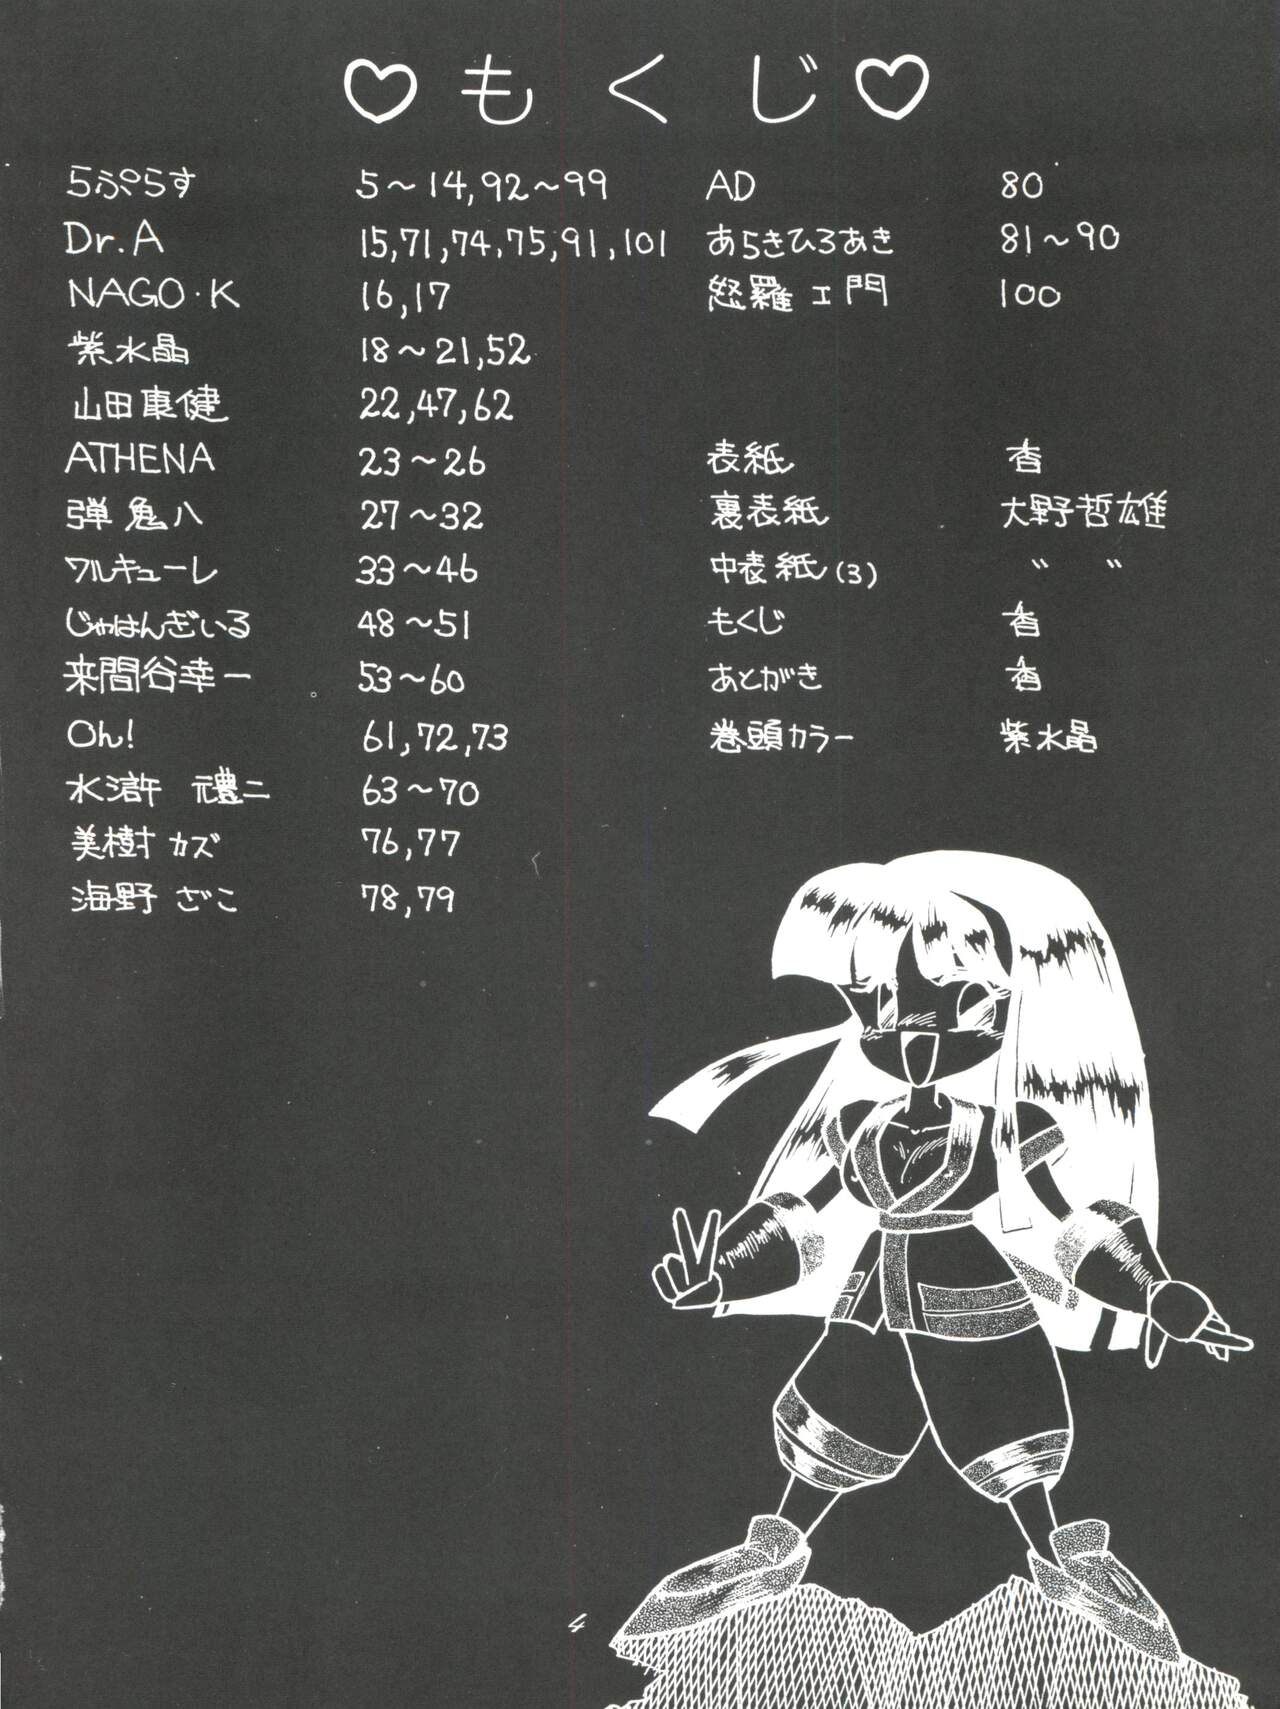 ♡もくじ♡
らぷらす 5～14,92～99
Dr.A 15,71,74,75,91,101
NAGO・K 16,17
紫水晶 18～21,52
山田康健 22,47,62
ATHENA 23～26
弾鬼八 27～32
ワルキューレ 33～46
じゃはんぎいる 48～51
来間谷幸一 53～60
Oh! 61,72,73
水滸 禮二 63～70
美樹カズ 76,77
海野 ざこ 78,79
AD 80
あらきひろあき 81～90
怒羅ェ門 100
表紙 香
裏表紙 大野哲雄
中表紙(3) 〃 〃
もくじ 香
あとがき 香
巻頭カラー 紫水晶
4